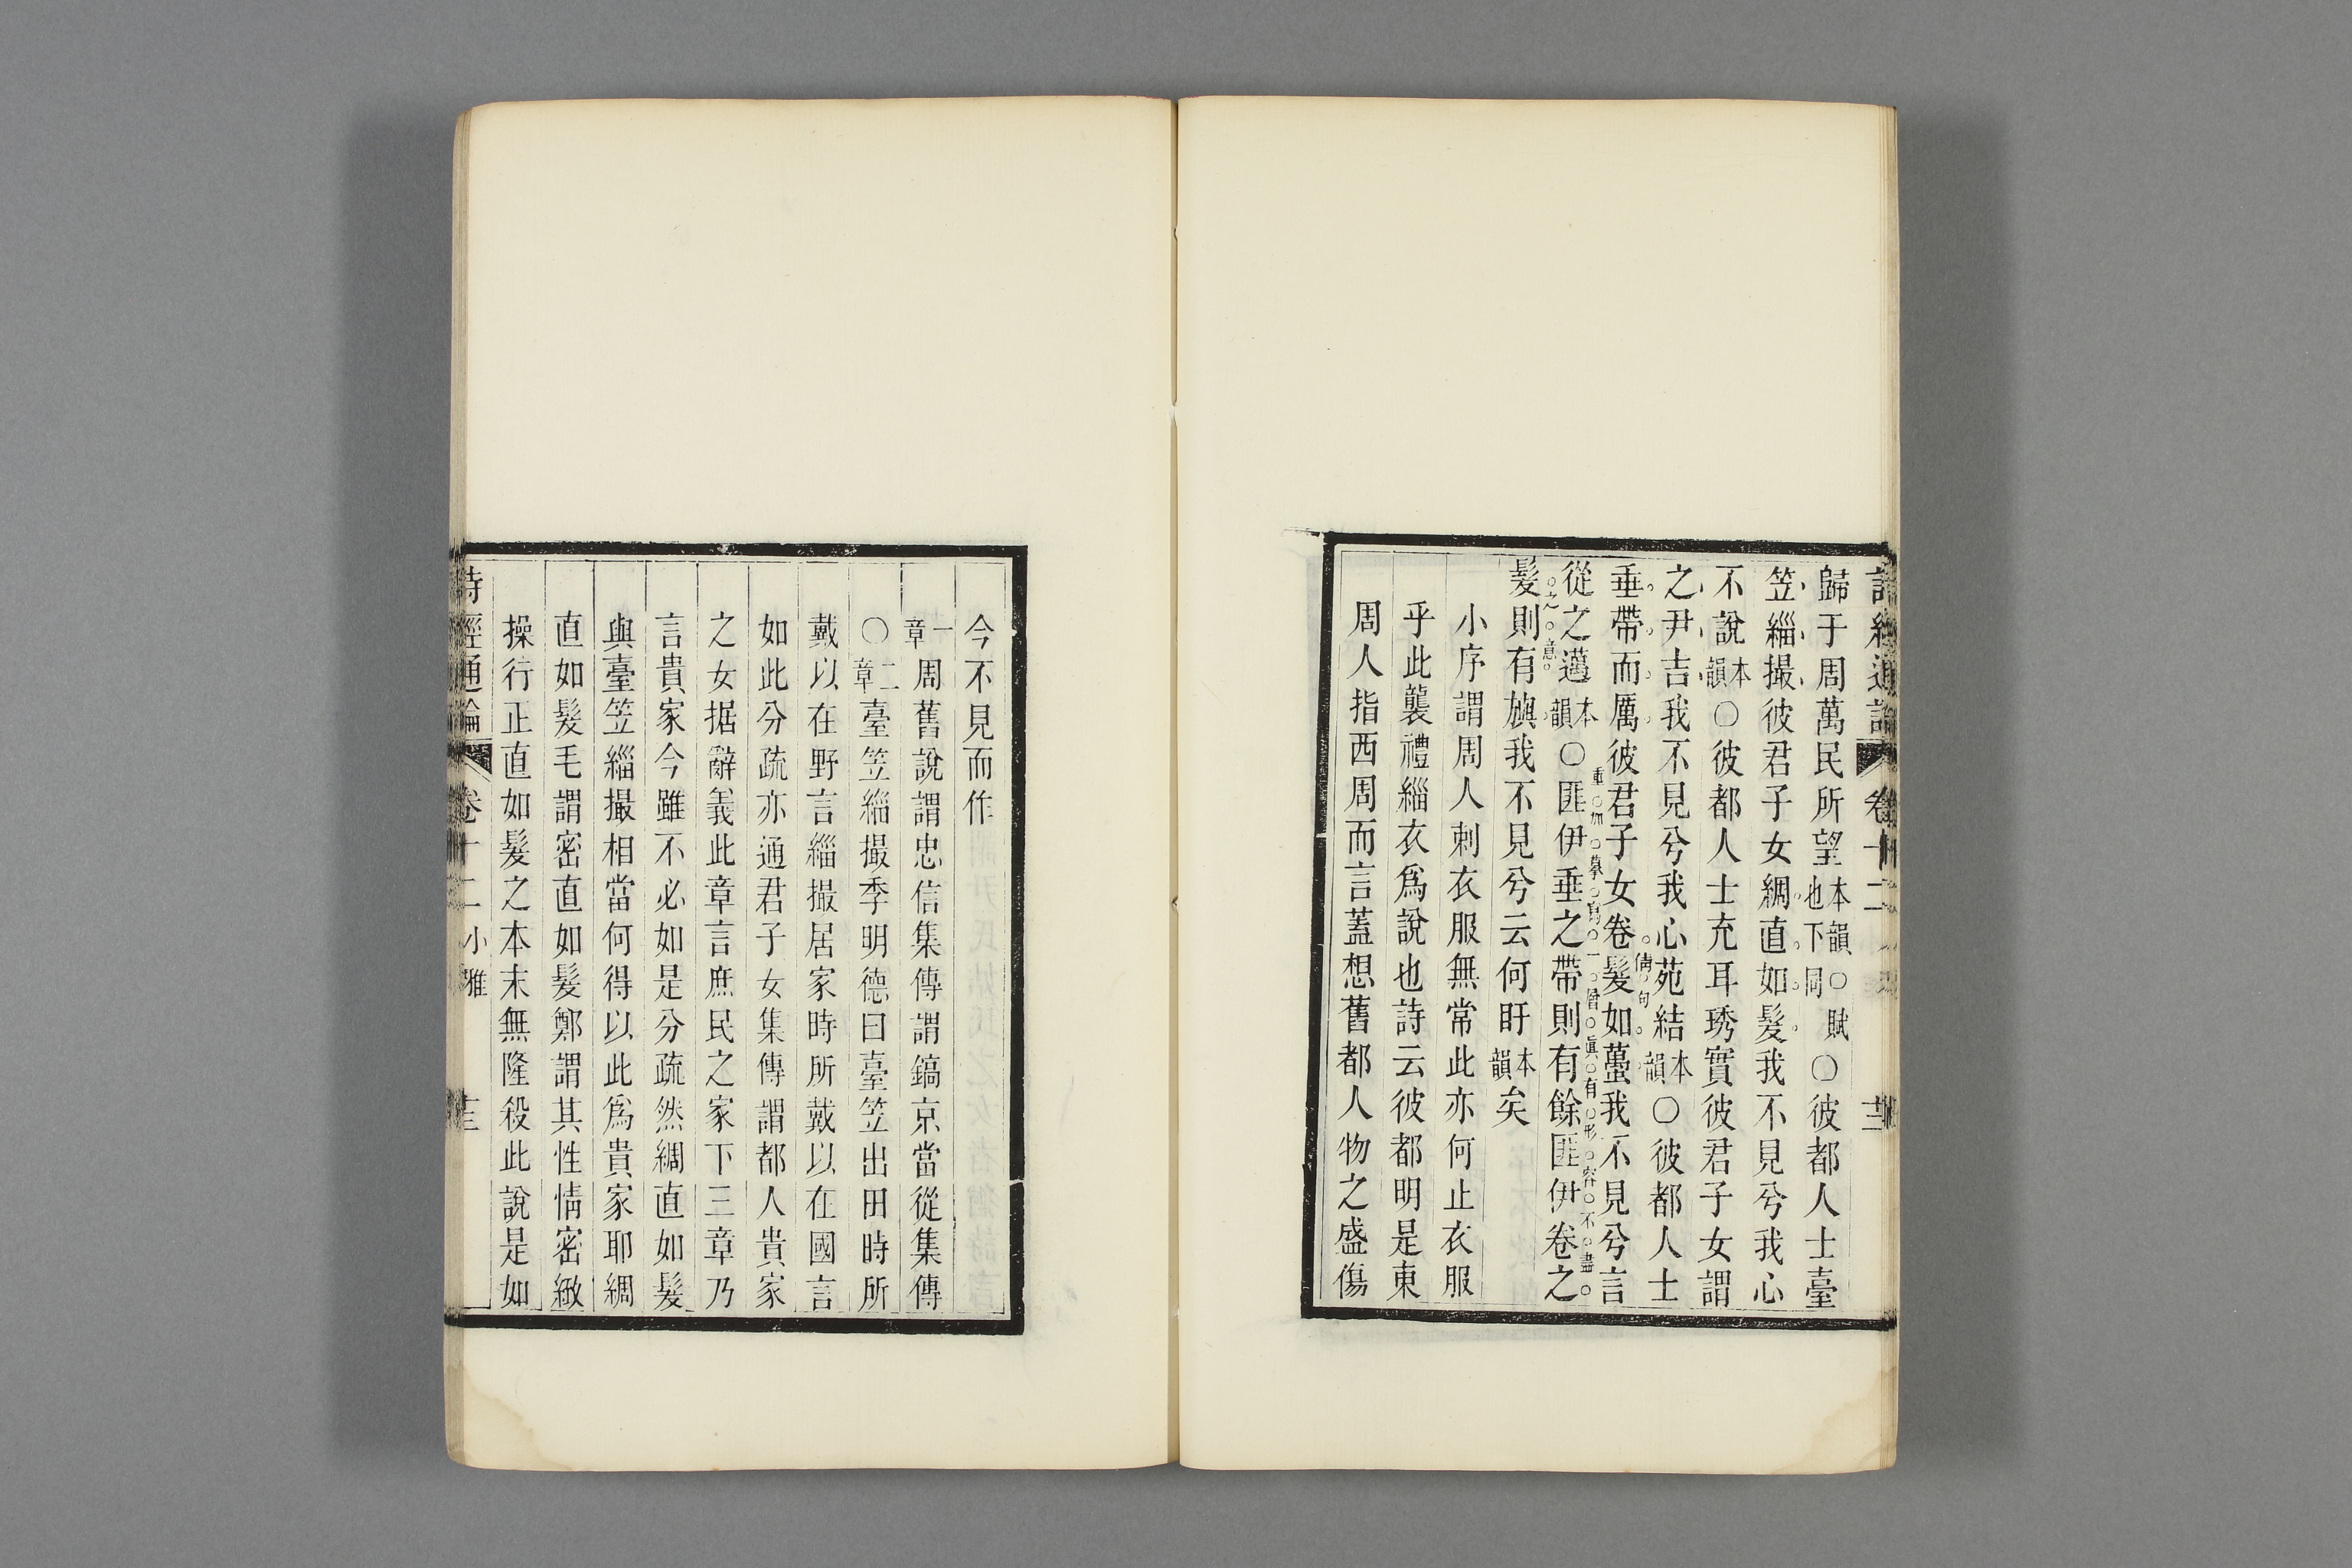 歸于周萬民所望本韻也下同○賦○彼都人士臺
笠緇撮彼君子女綢直如髮我不見兮我心
不說本韻○彼都人士充耳琇實彼君子女謂
之尹吉我不見兮我心苑結本韻○彼都人士
垂帶而厲彼君子女卷髮如蠆我不見兮言
倩句
從之邁本韻○匪伊垂之帶則有餘匪伊卷之
重加摹寫一層眞有形容不盡
之意
髮則有旟我不見兮云何盱本韻矣
小序謂周人刺衣服無常此亦何止衣服
乎此襲禮緇衣爲說也詩云彼都明是東
周人指西周而言蓋想舊都人物之盛傷
今不見而作
一章周舊說謂忠信集傳謂鎬京當從集傳
○二章臺笠緇撮季明德曰臺笠出田時所
戴以在野言緇撮居家時所戴以在國言
如此分疏亦通君子女集傳謂都人貴家
之女据辭義此章言庶民之家下三章乃
言貴家今雖不必如是分疏然綢直如髮
與臺笠緇撮相當何得以此爲貴家耶綢
直如髮毛謂密直如髮鄭謂其性情密緻
操行正直如髮之本末無隆殺此說是如
詩經通論 卷十二 小雅